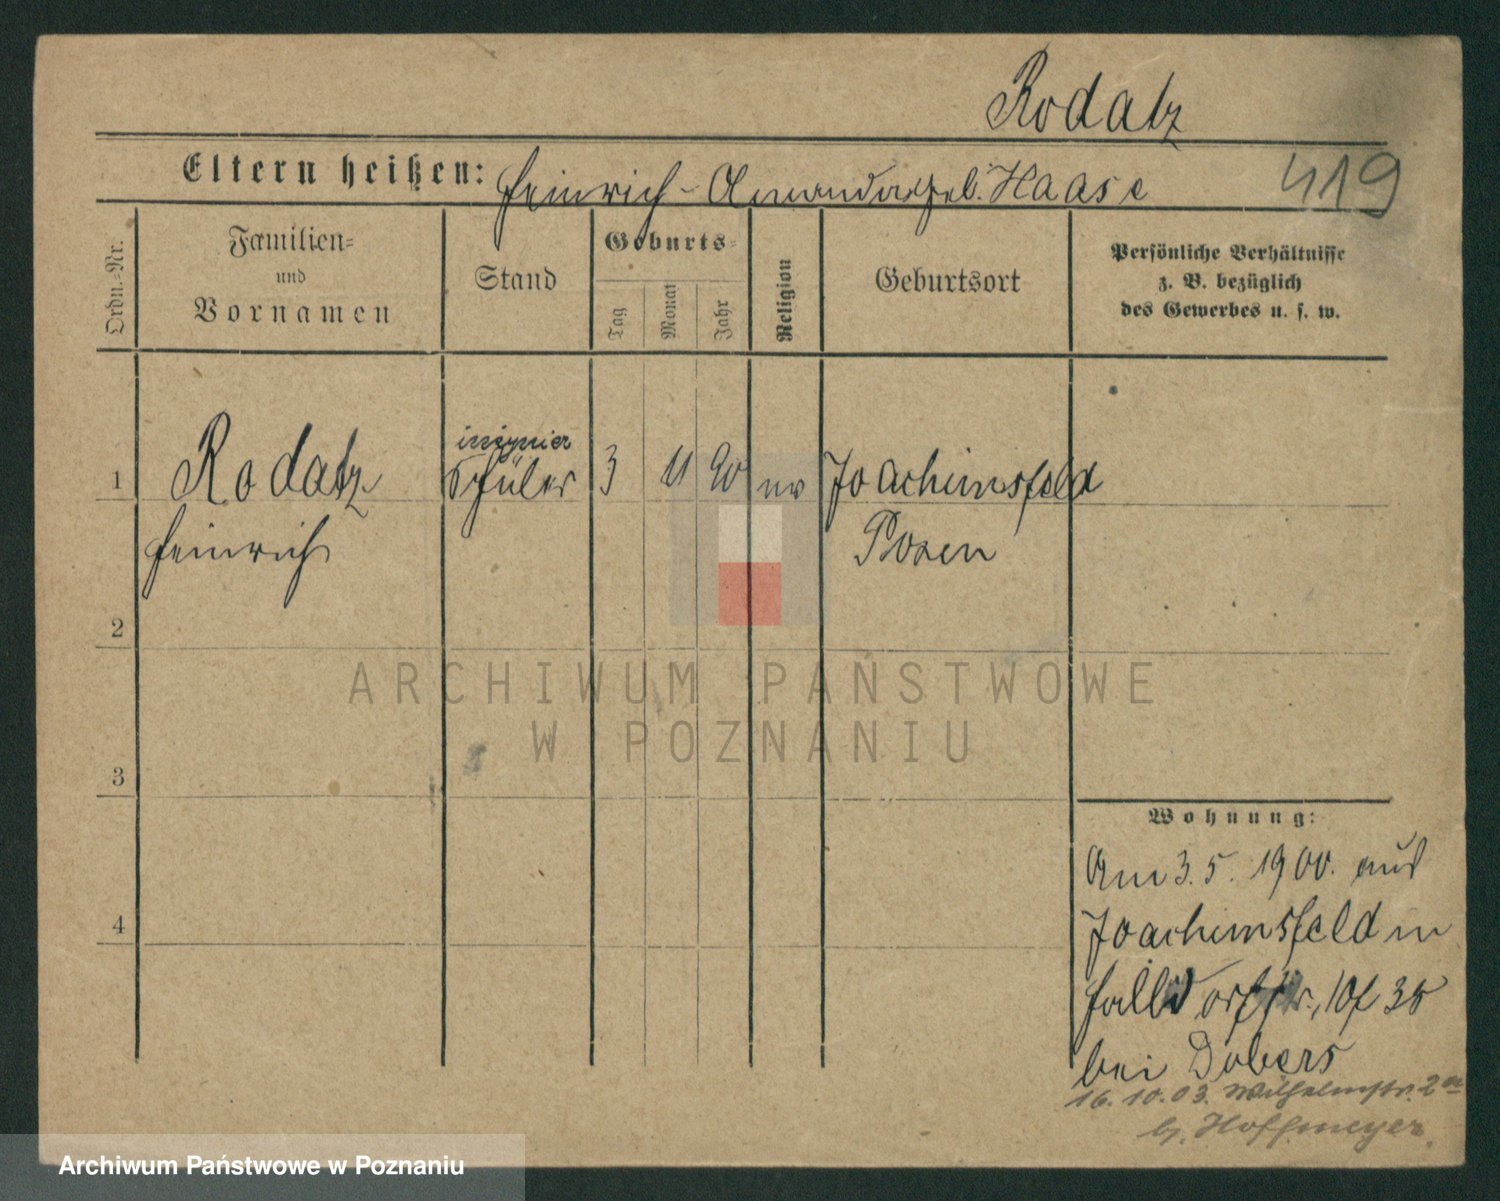 Rodatz
Eltern heißen: Heinrich - Amanda geb. Haase
419
Ordn.-Nr.
Familien-
und
Vornamen
Stand
Geburts-
Tag
Monat
Jahr
Religion
Geburtsort
Persönliche Verhältnisse
z. B. bezüglich
des Gewerbes u. s. w.
1 Rodatz Schüler 3 11 90 ev Joachimsfeld
Heinrich Posen
2
ARCHIWUM PAŃSTWOWE
W POZNANIU
3
Wohnung:
Am 3.5. 1900. aus
4
Joachimsfeld in
38
bei Dobers
16.10.03. Wilhelmstr. 2a
b. Hoffmeyer.
Archiwum Państwowe w Poznaniu